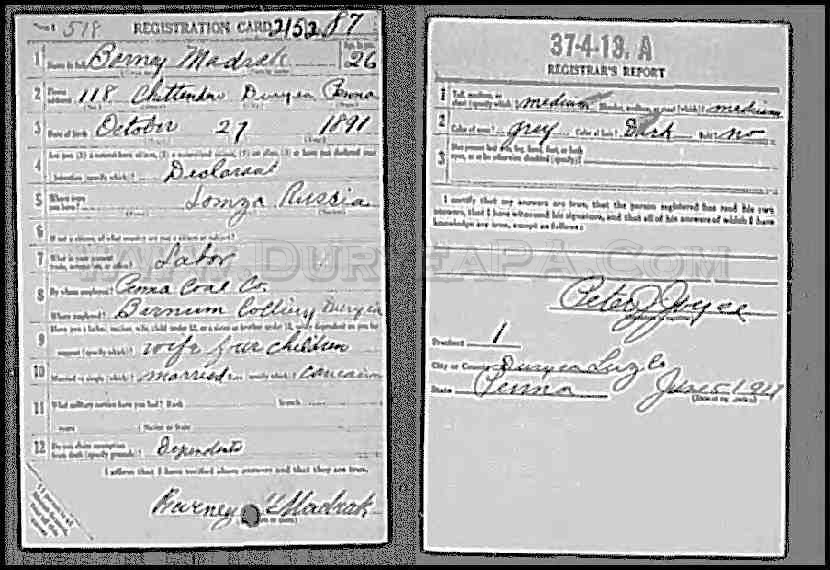 578 REGISTRATION CARD 2152 87
1 Name in full Barney Madrak Age, in yrs. 26
2 Home address 118 Chittenden Duryea Penna
3 Date of birth October 27 1891
4 Are you (1) a natural-born citizen, (2) a naturalized citizen, (3) an alien, (4) or have you declared your
intention (specify which)? Declarant
5 Where were you born? Lomza Russia
6 If not a citizen, of what country are you a citizen or subject?
7 What is your present trade, occupation, or office? Labor
8 By whom employed? Penna Coal Co.
Where employed? Barnum Colliery Duryea
9 Have you a father, mother, wife, child under 12, or a sister or brother under 12, solely dependent on you for
support (specify which)? wife four children
10 Married or single (which)? married Race (specify which)? Caucasian
11 What military service have you had? Rank Branch
years Nation or State
12 Do you claim exemption from draft (specify grounds)? Dependents
I affirm that I have verified above answers and that they are true.
Barney Madrak
37-4-13. A
REGISTRAR'S REPORT
1 Tall, medium, or short (specify which)? medium Slender, medium, or stout (which)? medium
2 Color of eyes? grey Color of hair? Dark Bald? no
3 Has person lost arm, leg, hand, foot, or both
eyes, or is he otherwise disabled (specify)?
I certify that my answers are true, that the person registered has read his own
answers, that I have witnessed his signature, and that all of his answers of which I have
knowledge are true, except as follows:
Peter J Joyce
Precinct 1
City or County Duryea Luz Co
State Penna June 5 1917
(Date of registration)
WWW.DURYEAPA.COM